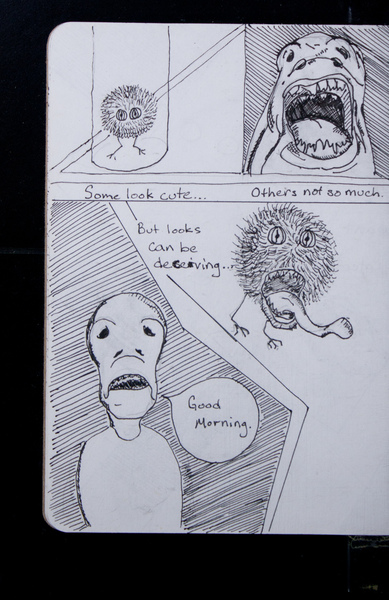 Some look cute...
Others not so much.
But looks
can be
deceiving...
Good
Morning.